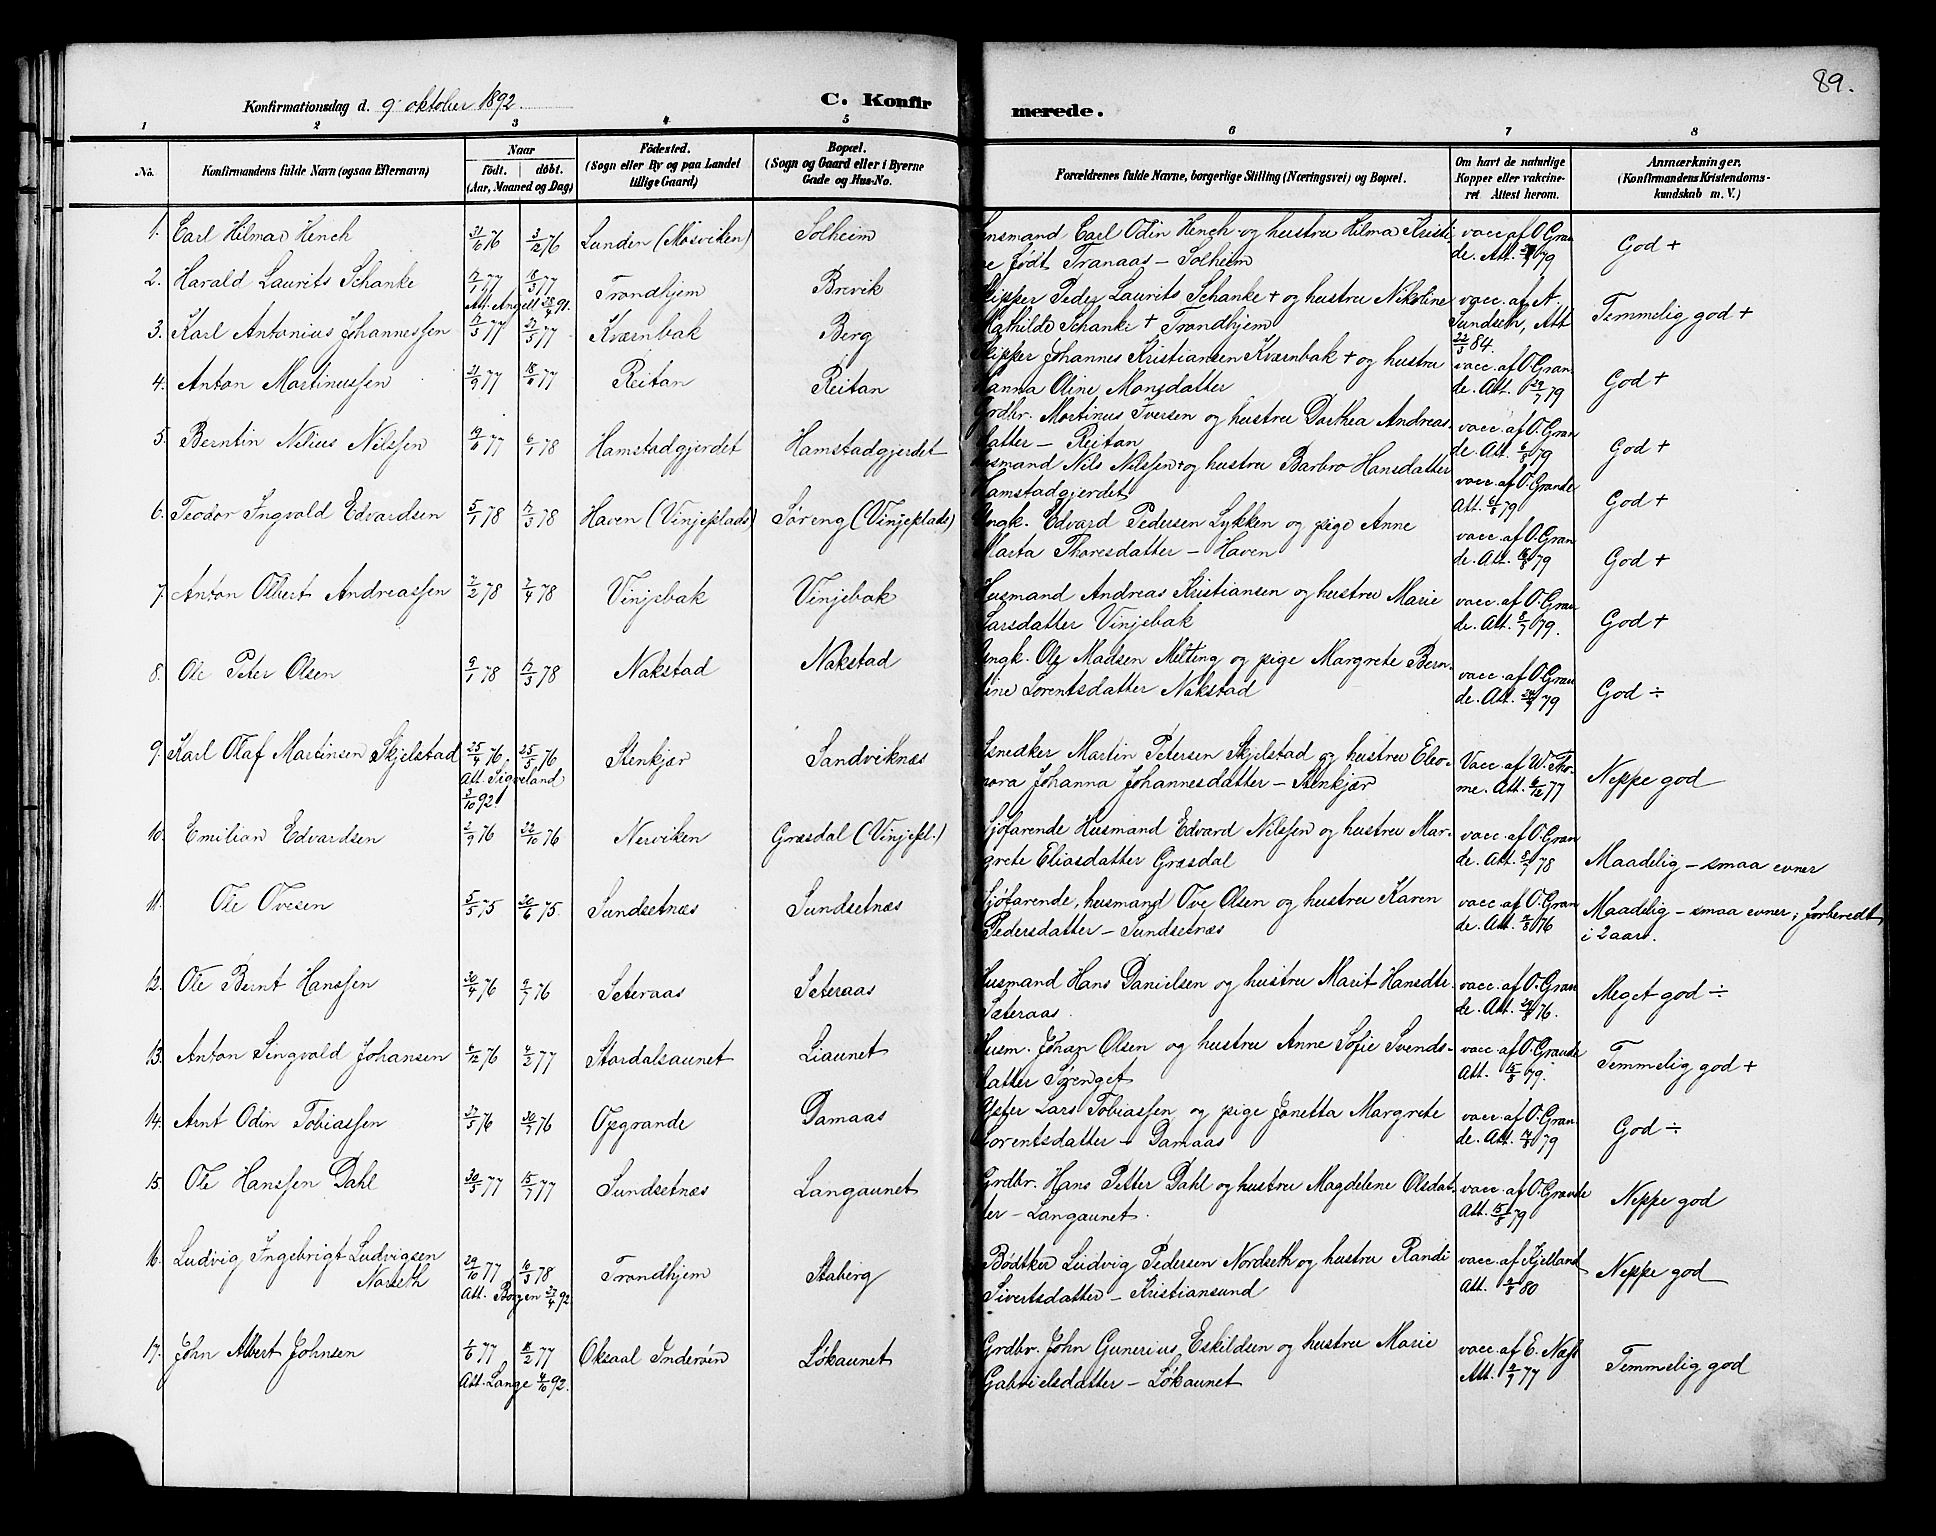 89.
Konfirmationsdag d. 9. oktober 1892. C. Konfir merede.
1 2 3 4 5 6 7 8
No. Konfirmandens fulde Navn (ogsaa Efternavn) Naar Födt. döbt. (Aar, Maaned og Dag) Födested. (Sogn eller By og paa Landet tillige Gaard) Bopæl. (Sogn og Gaard eller i Byerne Gade og Hus-No. Forældrenes fulde Navne, borgerlige Stilling (Næringsvei) og Bopæl. Om havt de naturlige Kopper eller vakcineret. Attest herom. Anmærkninger. (Konfirmandens Kristendomskundskab m. V.)
1. Carl Hilmar Hench 76 3/12 76 Lunden (Mosviken) Solheim
Lensmand Carl Odin Hench og hustru Hilma Kristi-
ne født Tranaas - Solheim
vacc. af O. Gran
de. Att. 79
God +
2. Harald Laurits Schanke 77 77 Trondhjem Brevik
Att. Angell 91.
Skipper Peder Laurits Schanke + og hustru Nikoline
Mathilde Schanke + Trondhjem
vacc. af A.
Sundseth, Att
22/3 84.
Temmelig god +
3. Karl Antonius Johannessen 77 77 Kværnbak Berg
Skipper Johannes Kristiansen Kværnbak + og hustru
Hanna Oline Monsdatter
vacc. af O. Gran
de. Att. 79
God +
4. Anton Martinussen 21/9 77 77 Reitan Reitan
Grdbr. Martinus Iversen og hustru Dorthea Andreas-
datter - Reitan
vacc. af O. Gran
de. Att. 79
God +
5. Berntin Nelius Nilssen 77 6/1 78 Hamstadgjerdet Hamstadgjerdet
Husmand Nils Nilssen + og hustru Barbro Hansdatter
Hamstadgjerdet
vacc. af O. Grande
Att. 6/8 79
God +
6. Teodor Ingvald Edvardsen 5/1 78 78 Haven (Vinjeplads) Søreng (Vinjeplads)
Ungk. Edvard Pedersen Lykken og pige Anne
Marta Thoresdatter - Haven
vacc. af O. Gran
de. Att. 79
God +
7. Anton Olbert Andreassen 2/2 78 78 Vinjebak Vinjebak
Husmand Andreas Kristiansen og hustru Marie
Larsdatter Vinjebak
vacc. af O. Gran
de. Att. 79.
God +
8. Ole Peter Olsen 9/1 78 78 Nakstad Nakstad
Ungk. Ole Madsen Melting og pige Margrete Bern-
tine Lorentsdatter Nakstad
vacc. af O. Gran
de. Att. 79
God ÷
9. Karl Olaf Martinsen Skjelstad 25/4 76 25/5 76 Stenkjær Sandviknæs
Att. Sigveland
3/10 92.
Snedker Martin Petersen Skjelstad og hustru Eleo-
nora Johanna Johannesdatter - Stenkjær
Vacc. af W. Tho-
me. Att. 6/12 77
Neppe god
10. Emilian Edvardsen 2/9 76 22/10 76 Nerviken Græsdal (Vinjepl.)
Sjøfarende Husmand Edvard Nilssen og hustru Mar-
grete Eliasdatter Græsdal
vacc. af O. Gran
de. Att. 78
Maadelig - smaa evner
11. Ole Ovesen 5/5 75 20/6 75. Sundsetnæs Sundsetnæs
Sjøfarende, husmand Ove Olsen og hustru Karen
Pedersdatter - Sundsetnæs
vacc. af O. Gran
de. Att. 76
Maadelig - smaa evner; forberedt
i 2 aar.
12. Ole Bernt Hanssen 30/4 76 9/7 76 Seteraas Seteraas
Husmand Hans Danielsen og hustru Marit Hansdtr.
Sæteraas.
vacc. af O. Gran
de. Att. 76.
Meget god ÷
13. Anton Singvald Johansen 6/12 76 4/2 77 Stordalsaunet Liaunet
Husm. Johan Olsen og hustru Anne Sofie Svends-
datter Sørenget
vacc. af O. Grande
Att. 15/8 79.
Temmelig god +
14. Arnt Odin Tobiassen 27/5 76 30/7 76 Opgrande Damaas
Lars Tobiassen og pige Jonetta Margrete
Lorentsdatter - Damaas
vacc. af O. Gran
de. Att. 79
God ÷
15. Ole Hanssen Dahl 30/5 77 15/7 77 Sundsetnæs Langaunet
Grdbr. Hans Petter Dahl og hustru Magdelene Olsdat-
ter - Langaunet.
vacc. af O. Grande
Att. 15/8 79
Neppe god
16. Ludvig Ingebrigt Ludvigsen 29/10 77 10/3 78 Trondhjem Staberg
Att. Borgen 92.
Bødtker Ludvig Pedersen Nordseth og hustru Randi
Sivertsdatter - Kristiansund
vacc. af Kjelland
Att. 80
Neppe god
17. John Albert Johnsen 77 77 Oksaal Inderøen Løkaunet
Att. Lange 4/10 92.
Grdbr. John Gunerius Eskildsen og hustru Marie
Gabrielsdatter - Løkaunet
vacc. af E. Næss
Att. 77
Temmelig god